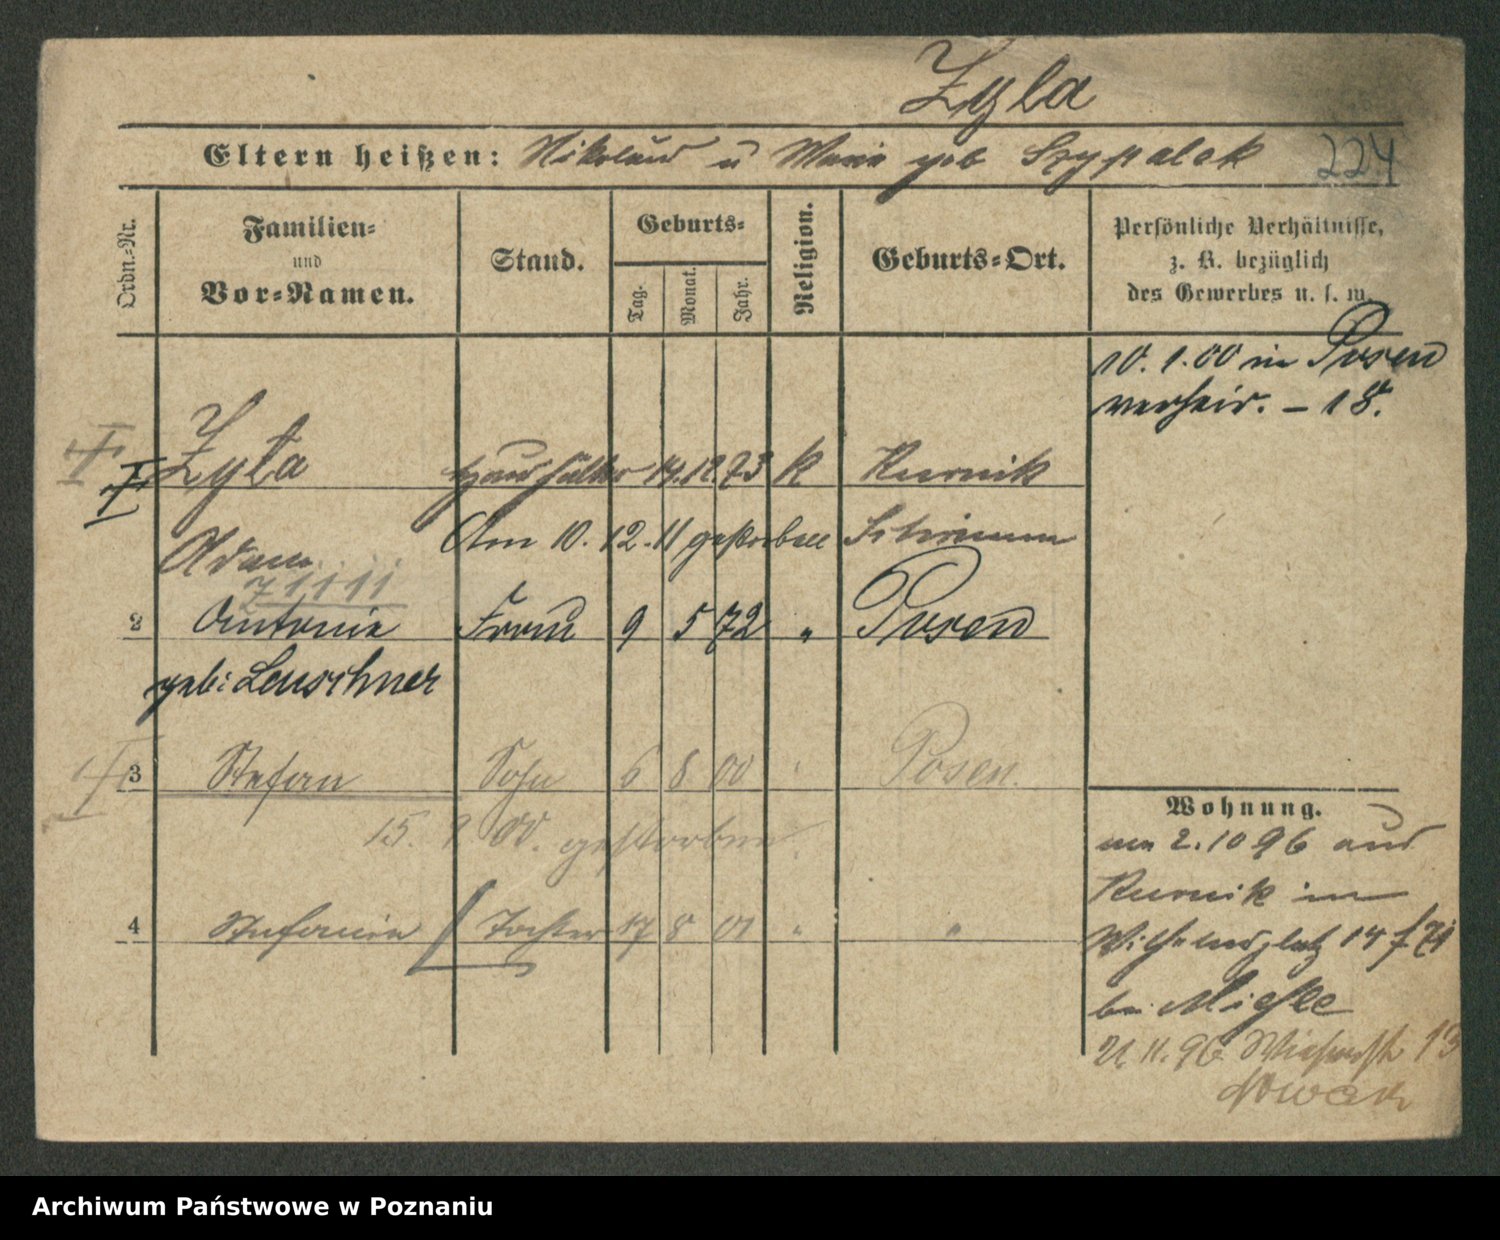 Zyla
Eltern heißen: Nikolaus u Maria geb Szypalak 224
Ordn.=Nr.
Familien=
und
Vor=Namen.
Stand.
Geburts=
Tag.
Monat.
Jahr.
Religion.
Geburts=Ort.
Persönliche Verhältnisse,
z. B. bezüglich
des Gewerbes u. s. w.
10. 1. 00 in Posen
verheir. – 18.
Zyla Haushälter 14. 12. 73 K Kurnik
Adam Am 10. 12. 11 gestorben Schrimm
71111
2 Antonie Frau 9 5 72 " Posen
geb: Leuschner
3 Stefan Sohn 6 8 00 " Posen.
15. 00. gestorben.
4 Stefanie Tochter 17 8 01 " "
Wohnung.
2. 10 96 aus
Kurnik in
Wilhelmsplatz 14
bei Mieske
21. 11. 96 13
Nowak
Archiwum Państwowe w Poznaniu